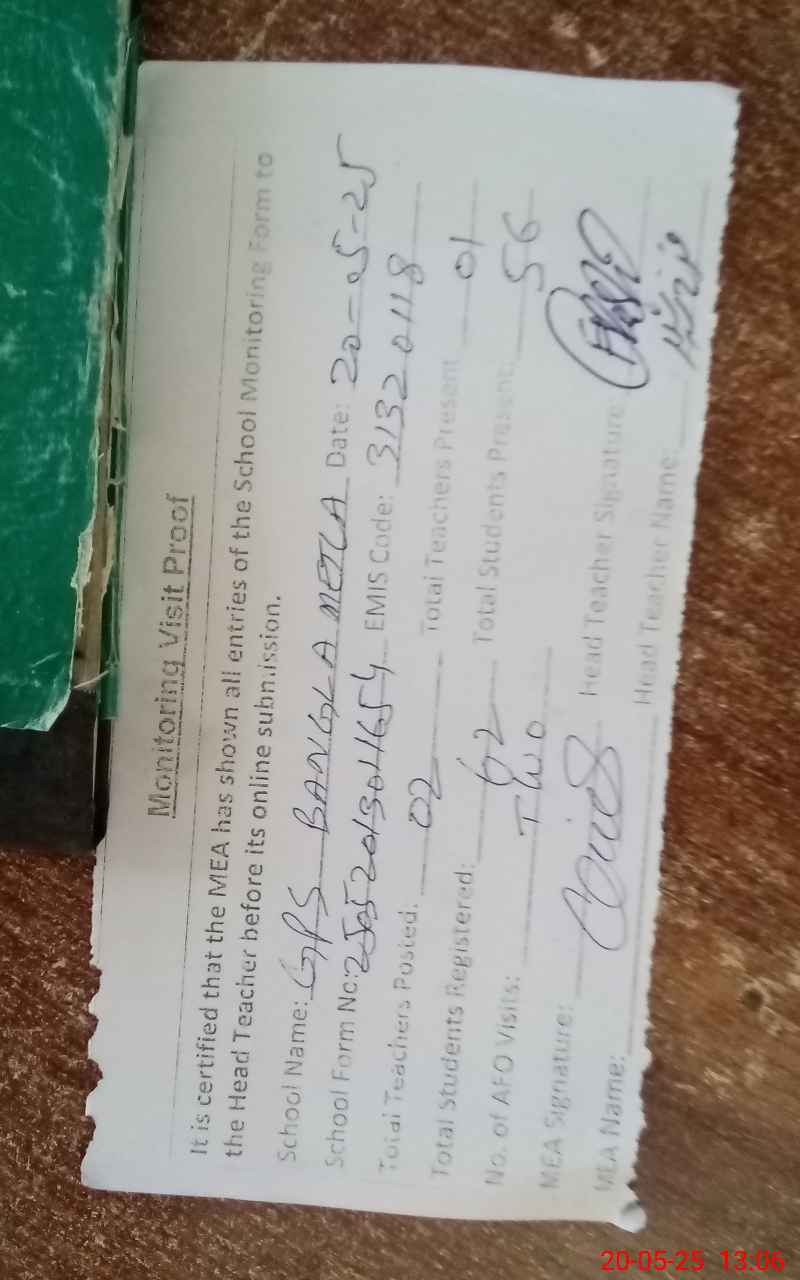 Monitoring Visit Proof
It is certified that the MEA has shown all entries of the School Monitoring Form to
the Head Teacher before its online submission.
School Name: GPS BANGLA METLA Date: 20-05-25
School Form No: 2505201301654 EMIS Code: 31320118
Total Teachers Posted: 02 Total Teachers Present 01
Total Students Registered: 62 Total Students Present: 56
No. of AEO Visits: Two
MEA Signature: Head Teacher Signature:
MEA Name: Head Teacher Name:
20-05-25 13:06